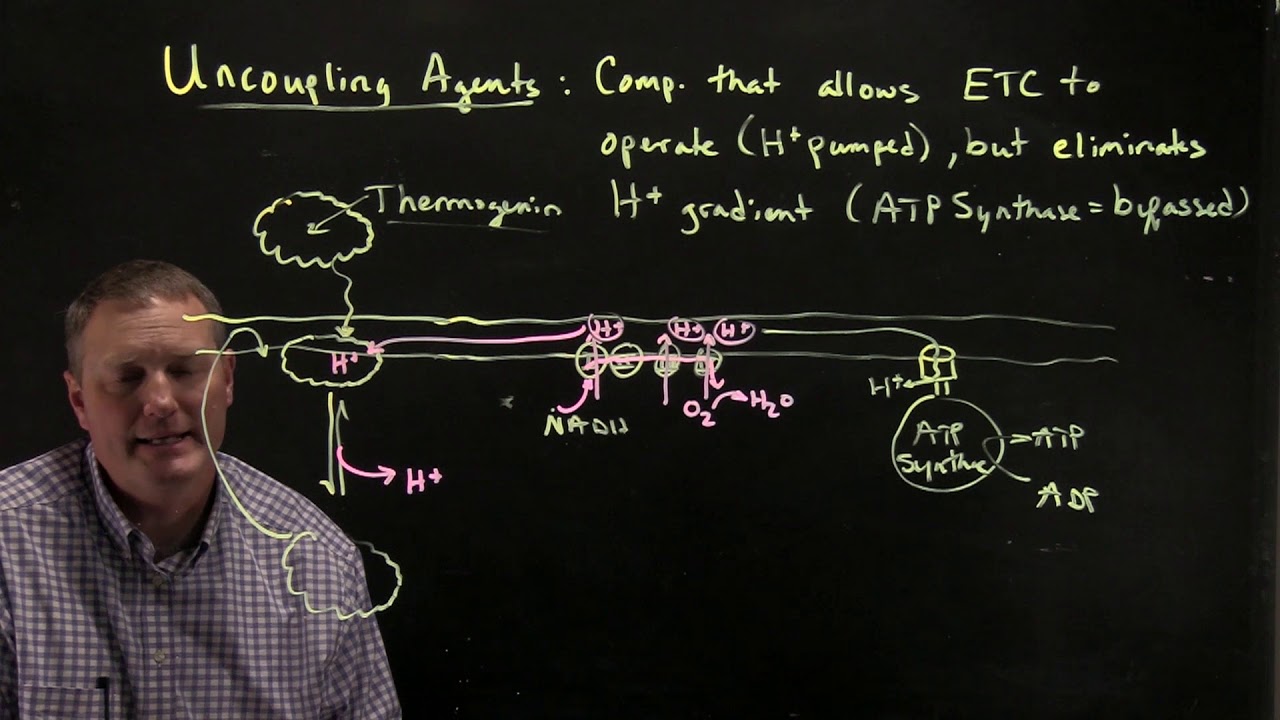 Uncoupling Agents: Comp. that allows ETC to
operate (H+ pumped), but eliminates
H+ gradient (ATP Synthase = bypassed)
Thermogenin
H+ H+ H+
H+
H+
NADH O2 H2O
H+
ATP Synthase
ATP
ADP